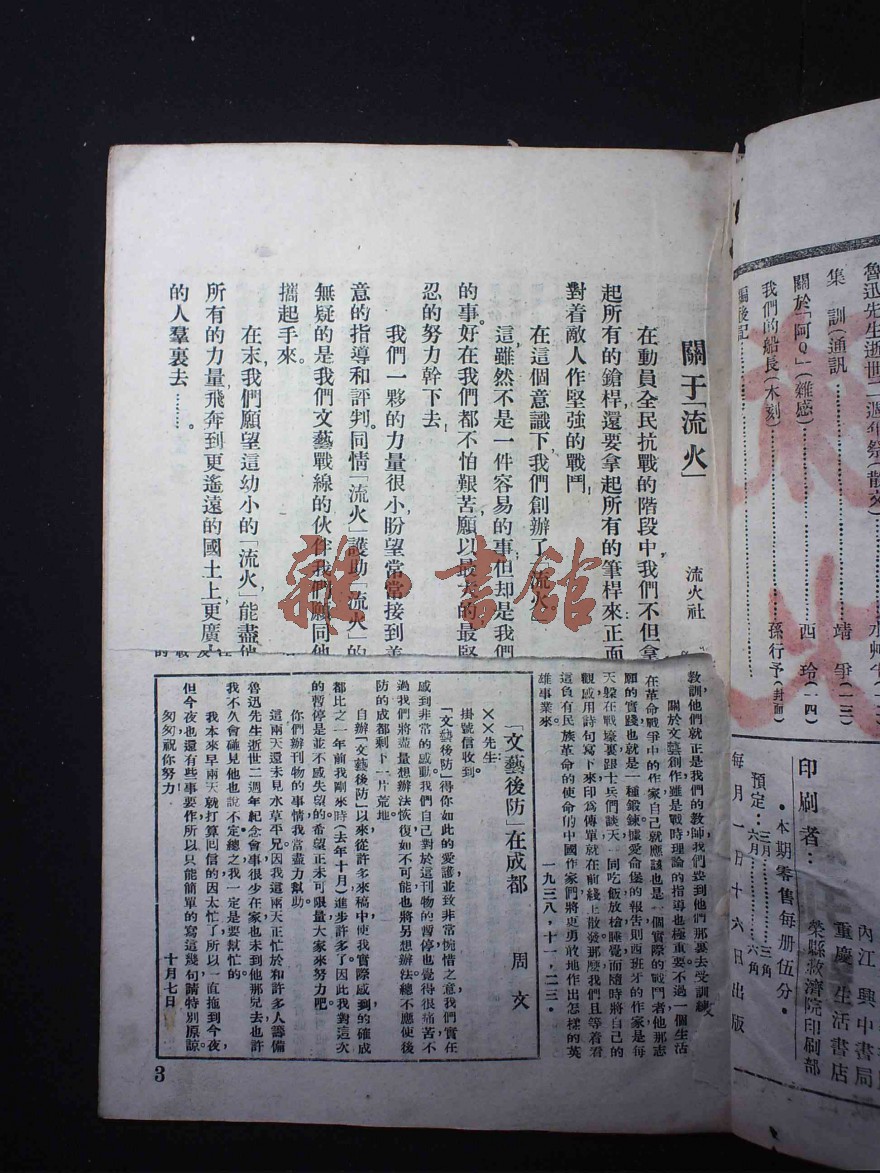 關于「流火」
流火社
在動員全民抗戰的階段中，我們不但拿
起所有的鎗桿，還要拿起所有的筆桿來正面
對着敵人作堅強的戰鬥！
在這個意識下，我們創辦了「流火」
這，雖然不是一件容易的事，但却是我們
的事。好在我們都不怕艱苦，願以最大的最堅
忍的努力幹下去！
我們一夥的力量很小，盼望常常接到善
意的指導和評判。同情「流火」護助「流火」的
無疑的是我們文藝戰線的伙伴，我們願同他
攜起手來。
在末，我們願望這幼小的「流火」能盡他
所有的力量，飛奔到更遙遠的國土上，更廣大
的人羣裏去……。
教訓，他們就正是我們的教師，我們要到他們那裏去受訓練
關於文藝創作雖是戰時理論的指導也極重要不過一個生活
在革命戰爭中的作家自己就應該也是一個實際的戰鬥者他那志
願的實踐也就是一種鍛鍊據愛侖堡的報告則西班牙的作家是每
天躲在戰壕裏跟士兵們談天一同吃飯放槍睡覺而隨時將自己的
觀感用詩句寫下來印為傳單就在前綫上散發那麼我們且等着看
這負有民族革命的使命的中國作家們將更勇敢地作出怎樣的英
雄事業來。
一九三八，十一，二三·
「文藝後防」在成都
周文
××先生：
掛號信收到。
「文藝後防」得你如此的愛護並致非常惋惜之意我們實在
感到非常的感動我們自己對於這刊物的暫停也覺得很痛苦不
過我們將盡量想辦法恢復如不可能也將另想辦法總不應使後
防的成都剩下一片荒地。
自辦「文藝後防」以來從許多來稿中使我實際感到的確成
都比之一年前我剛來時（去年十月）進步許多了因此我對這次
的暫停是並不感失望的希望正未可限量大家來努力吧。
你們辦刊物的事情我當盡力幫助。
這兩天還未見水草平兄，因我這兩天正忙於和許多人籌備
魯迅先生逝世二週年紀念會事很少在家也未到他那兒去也許
我不久會碰見他也說不定。總之我一定是要幫忙的。
我本來早兩天就打算回信的因太忙了所以一直拖到今夜
但今夜也還有些事要作所以只能簡單的寫這幾句請特別原諒。
匆匆祝你努力
十月七日
3
魯迅先生逝世二週年祭（散文）
集訓（通訊）……靖爭（一三）
關於「阿Q」（雜感）……西玲（一四）
我們的船長（木刻）……孫行予（封面）
編後記
內江興中書局
重慶生活書店
印刷者：榮縣救濟院印刷部
·本期零售每册伍分·
預定：三月……三角
六月……六角
每月一日十六日出版
雜·書館